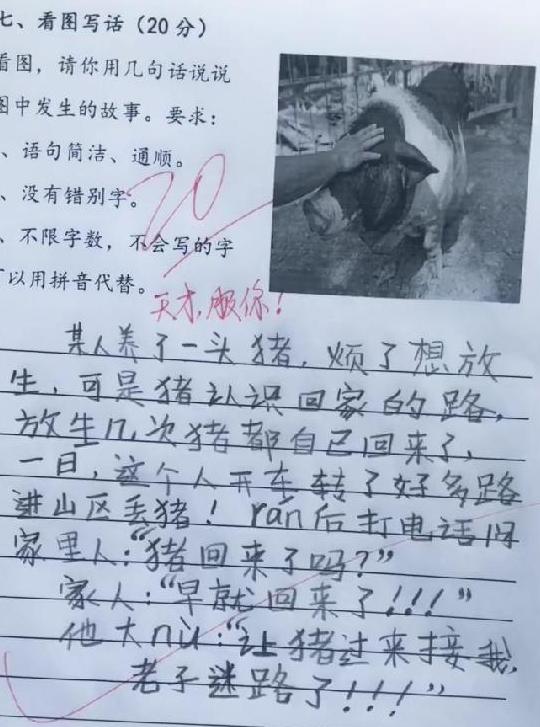 七、看图写话（20分）
看图，请你用几句话说说
图中发生的故事。要求：
、语句简洁、通顺。
、没有错别字。
、不限字数，不会写的字
可以用拼音代替。
20
天才，服你！
某人养了一头猪，烦了想放
生，可是猪认识回家的路，
放生几次猪都自己回来了，
一日，这个人开车转了好多路
进山区丢猪！rán后打电话问
家里人：“猪回来了吗？”
家人：“早就回来了！！！”
他大nù：“让猪过来接我，
老子迷路了！！！”